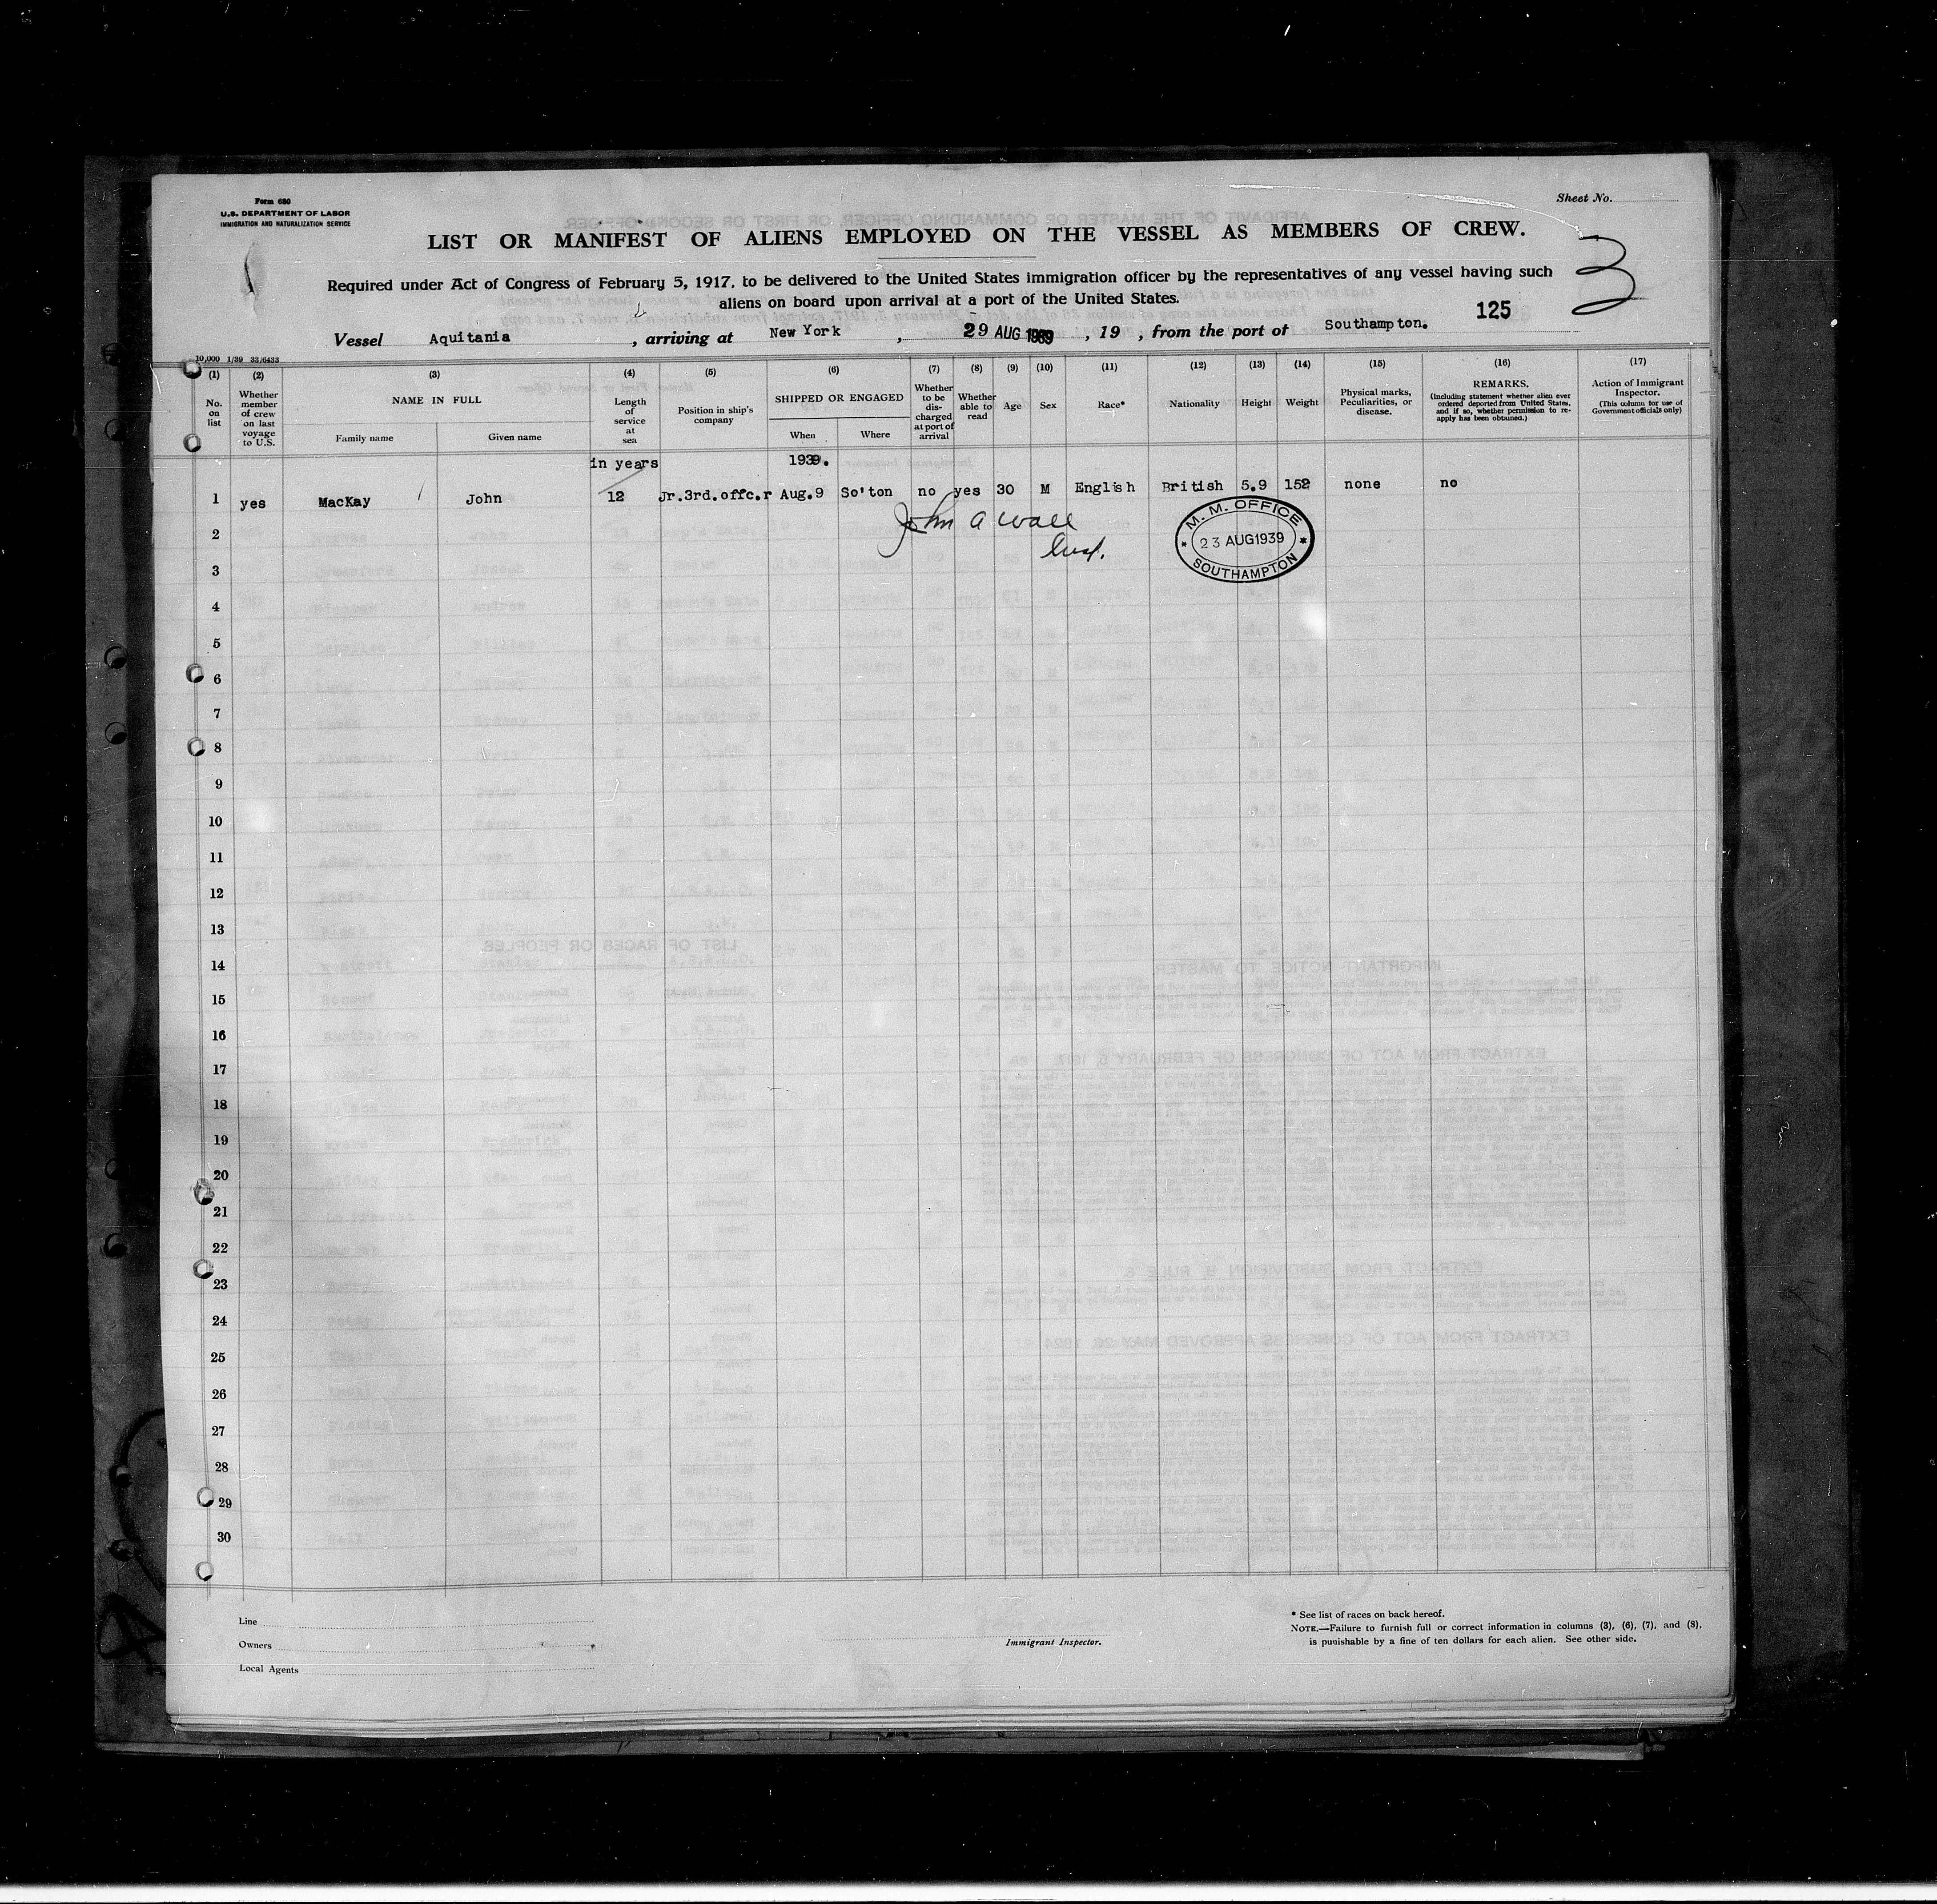 Form 680
U.S. DEPARTMENT OF LABOR
IMMIGRATION AND NATURALIZATION SERVICE
Sheet No.
LIST OR MANIFEST OF ALIENS EMPLOYED ON THE VESSEL AS MEMBERS OF CREW.
3
Required under Act of Congress of February 5, 1917, to be delivered to the United States immigration officer by the representatives of any vessel having such
aliens on board upon arrival at a port of the United States.
125
Vessel Aquitania, arriving at New York, 29 AUG 1939, 19 , from the port of Southampton.
10,000 1/39 33/6433
(1) (2) (3) (4) (5) (6) (7) (8) (9) (10) (11) (12) (13) (14) (15) (16) (17)
No. on list
Whether member of crew on last voyage to U.S.
NAME IN FULL
Family name
Given name
Length of service at sea
Position in ship's company
SHIPPED OR ENGAGED
When
Where
Whether to be discharged at port of arrival
Whether able to read
Age
Sex
Race*
Nationality
Height
Weight
Physical marks, Peculiarities, or disease.
REMARKS.
(Including statement whether alien ever ordered deported from United States, and if so, whether permission to re-apply has been obtained.)
Action of Immigrant Inspector.
(This column for use of Government officials only)
in years 1939.
1 yes MacKay John 12 Jr.3rd.offc.r Aug.9 So'ton no yes 30 M English British 5.9 152 none no
John A Wall
M. M. OFFICE
23 AUG 1939
SOUTHAMPTON
2
3
4
5
6
7
8
9
10
11
12
13
14
15
16
17
18
19
20
21
22
23
24
25
26
27
28
29
30
Line
Owners
Local Agents
Immigrant Inspector.
* See list of races on back hereof.
NOTE.—Failure to furnish full or correct information in columns (3), (6), (7), and (8),
is punishable by a fine of ten dollars for each alien. See other side.